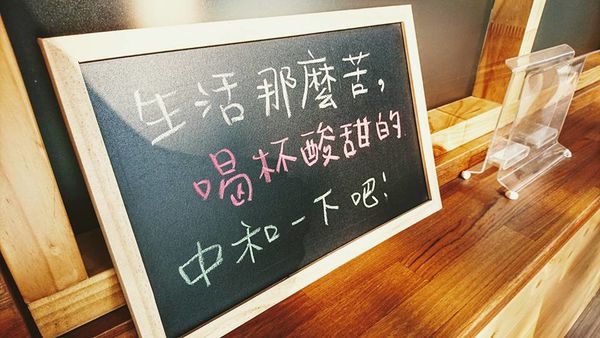 生活那麼苦,
喝杯酸甜的
中和一下吧!